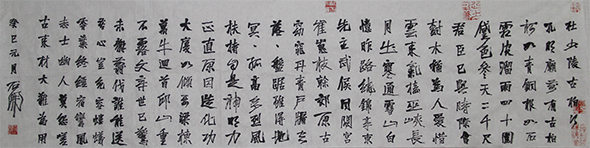 杜少陵古柏行
孔明廟前有古柏
柯如青銅根如石
霜皮溜雨四十圍
黛色參天二千尺
君臣已與時際會
樹木猶為人愛惜
雲來氣接巫峽長
月出寒通雪山白
憶昨路繞錦亭東
先主武侯同閟宮
崔嵬枝幹郊原古
窈窕丹青戶牖空
落落盤踞雖得地
冥冥孤高多烈風
扶持自是神明力
正直原因造化功
大廈如傾要梁棟
萬牛迴首丘山重
不露文章世已驚
未辭剪伐誰能送
苦心豈免容螻蟻
香葉終經宿鸞鳳
志士幽人莫怨嗟
古來材大難為用
癸巳元月